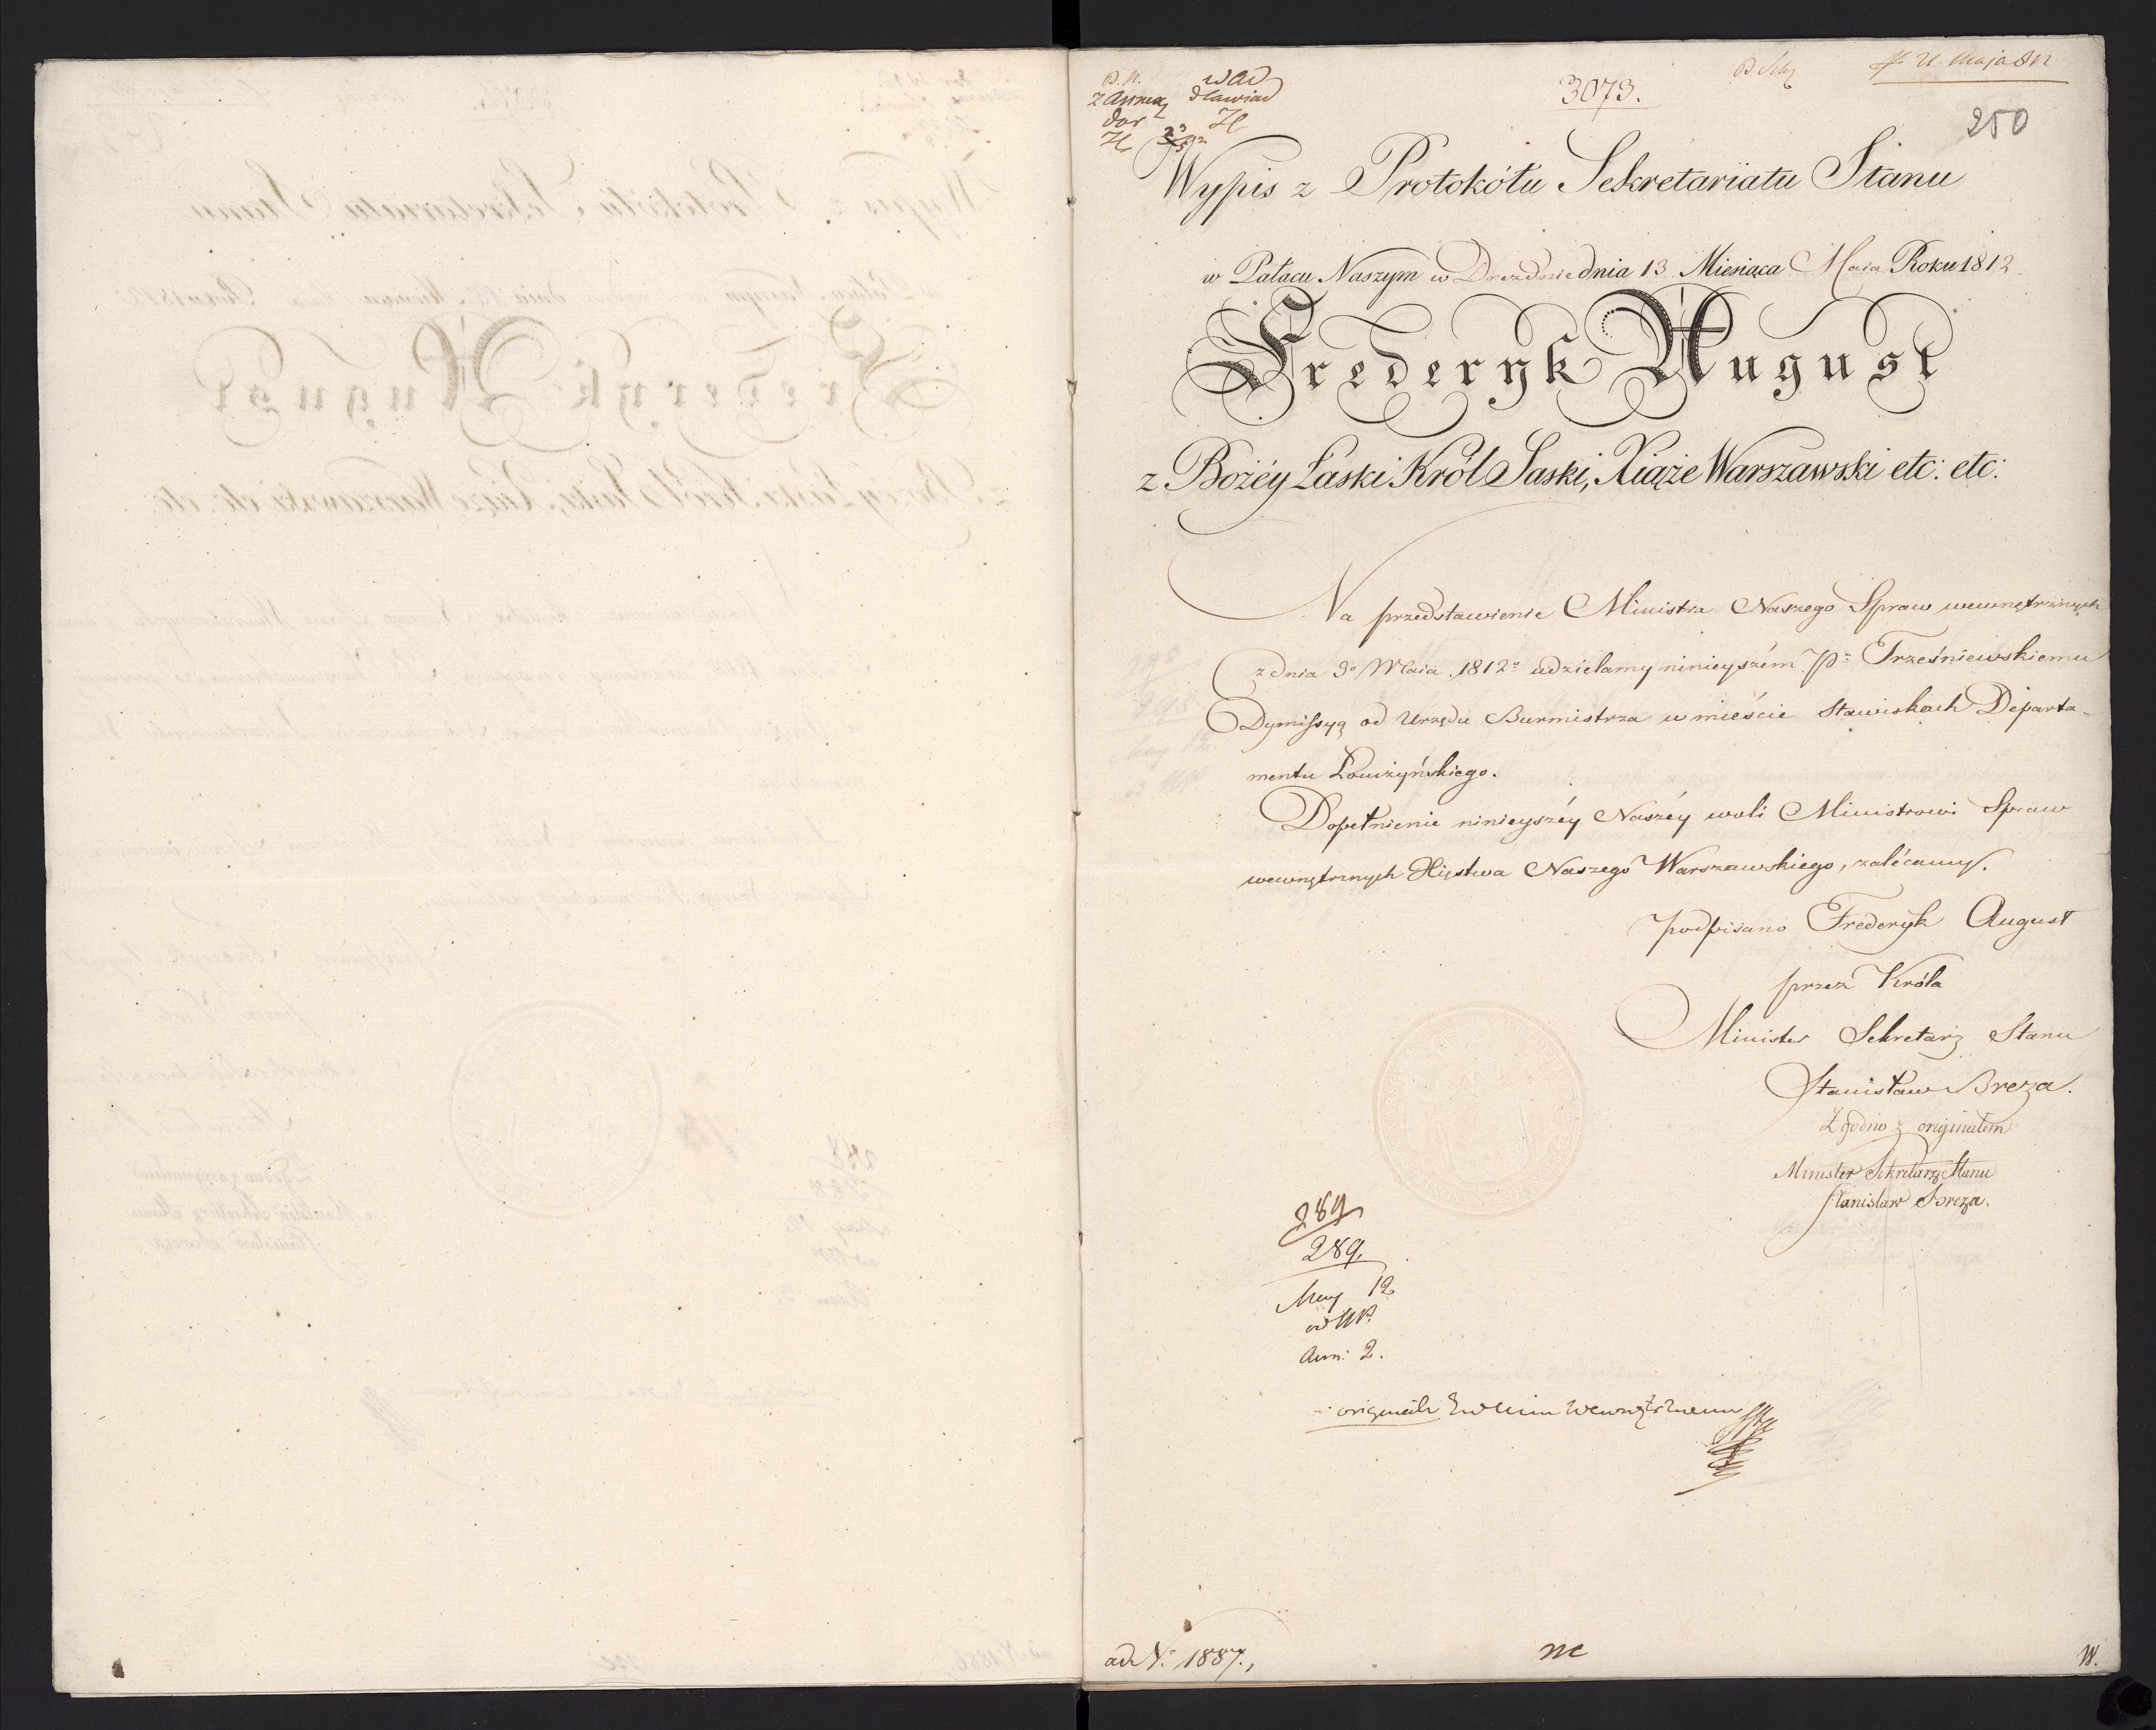 3073.
250
Wypis z Protokółu Sekretariatu Stanu
w Pałacu Naszym w Dreznie dnia 13 Miesiąca Maia Roku 1812
Frederyk August
z Bożéy Łaski Król Saski, Xiąże Warszawski etc: etc:
Na przedstawienie Ministra Naszego Spraw wewnętrznych
z dnia 9º Maia 1812º udzielamy ninieyszém Pº Trześniewskiemu
Dymissyą od Urzędu Burmistrza w mieście Stawiskach Departa-
mentu Łomżyńskiego.
Dopełnienie ninieyszéy Naszéy woli Ministrowi Spraw
wewnętrznych Xięstwa Naszego Warszawskiego, zalécamy.
podpisano Frederyk August
przez Króla
Minister Sekretarz Stanu
Stanisław Breza.
Zgodno z originałem
Minister Sekretarz Stanu
Stanisław Breza.
289
289.
12
2.
ad Nº 1887.,